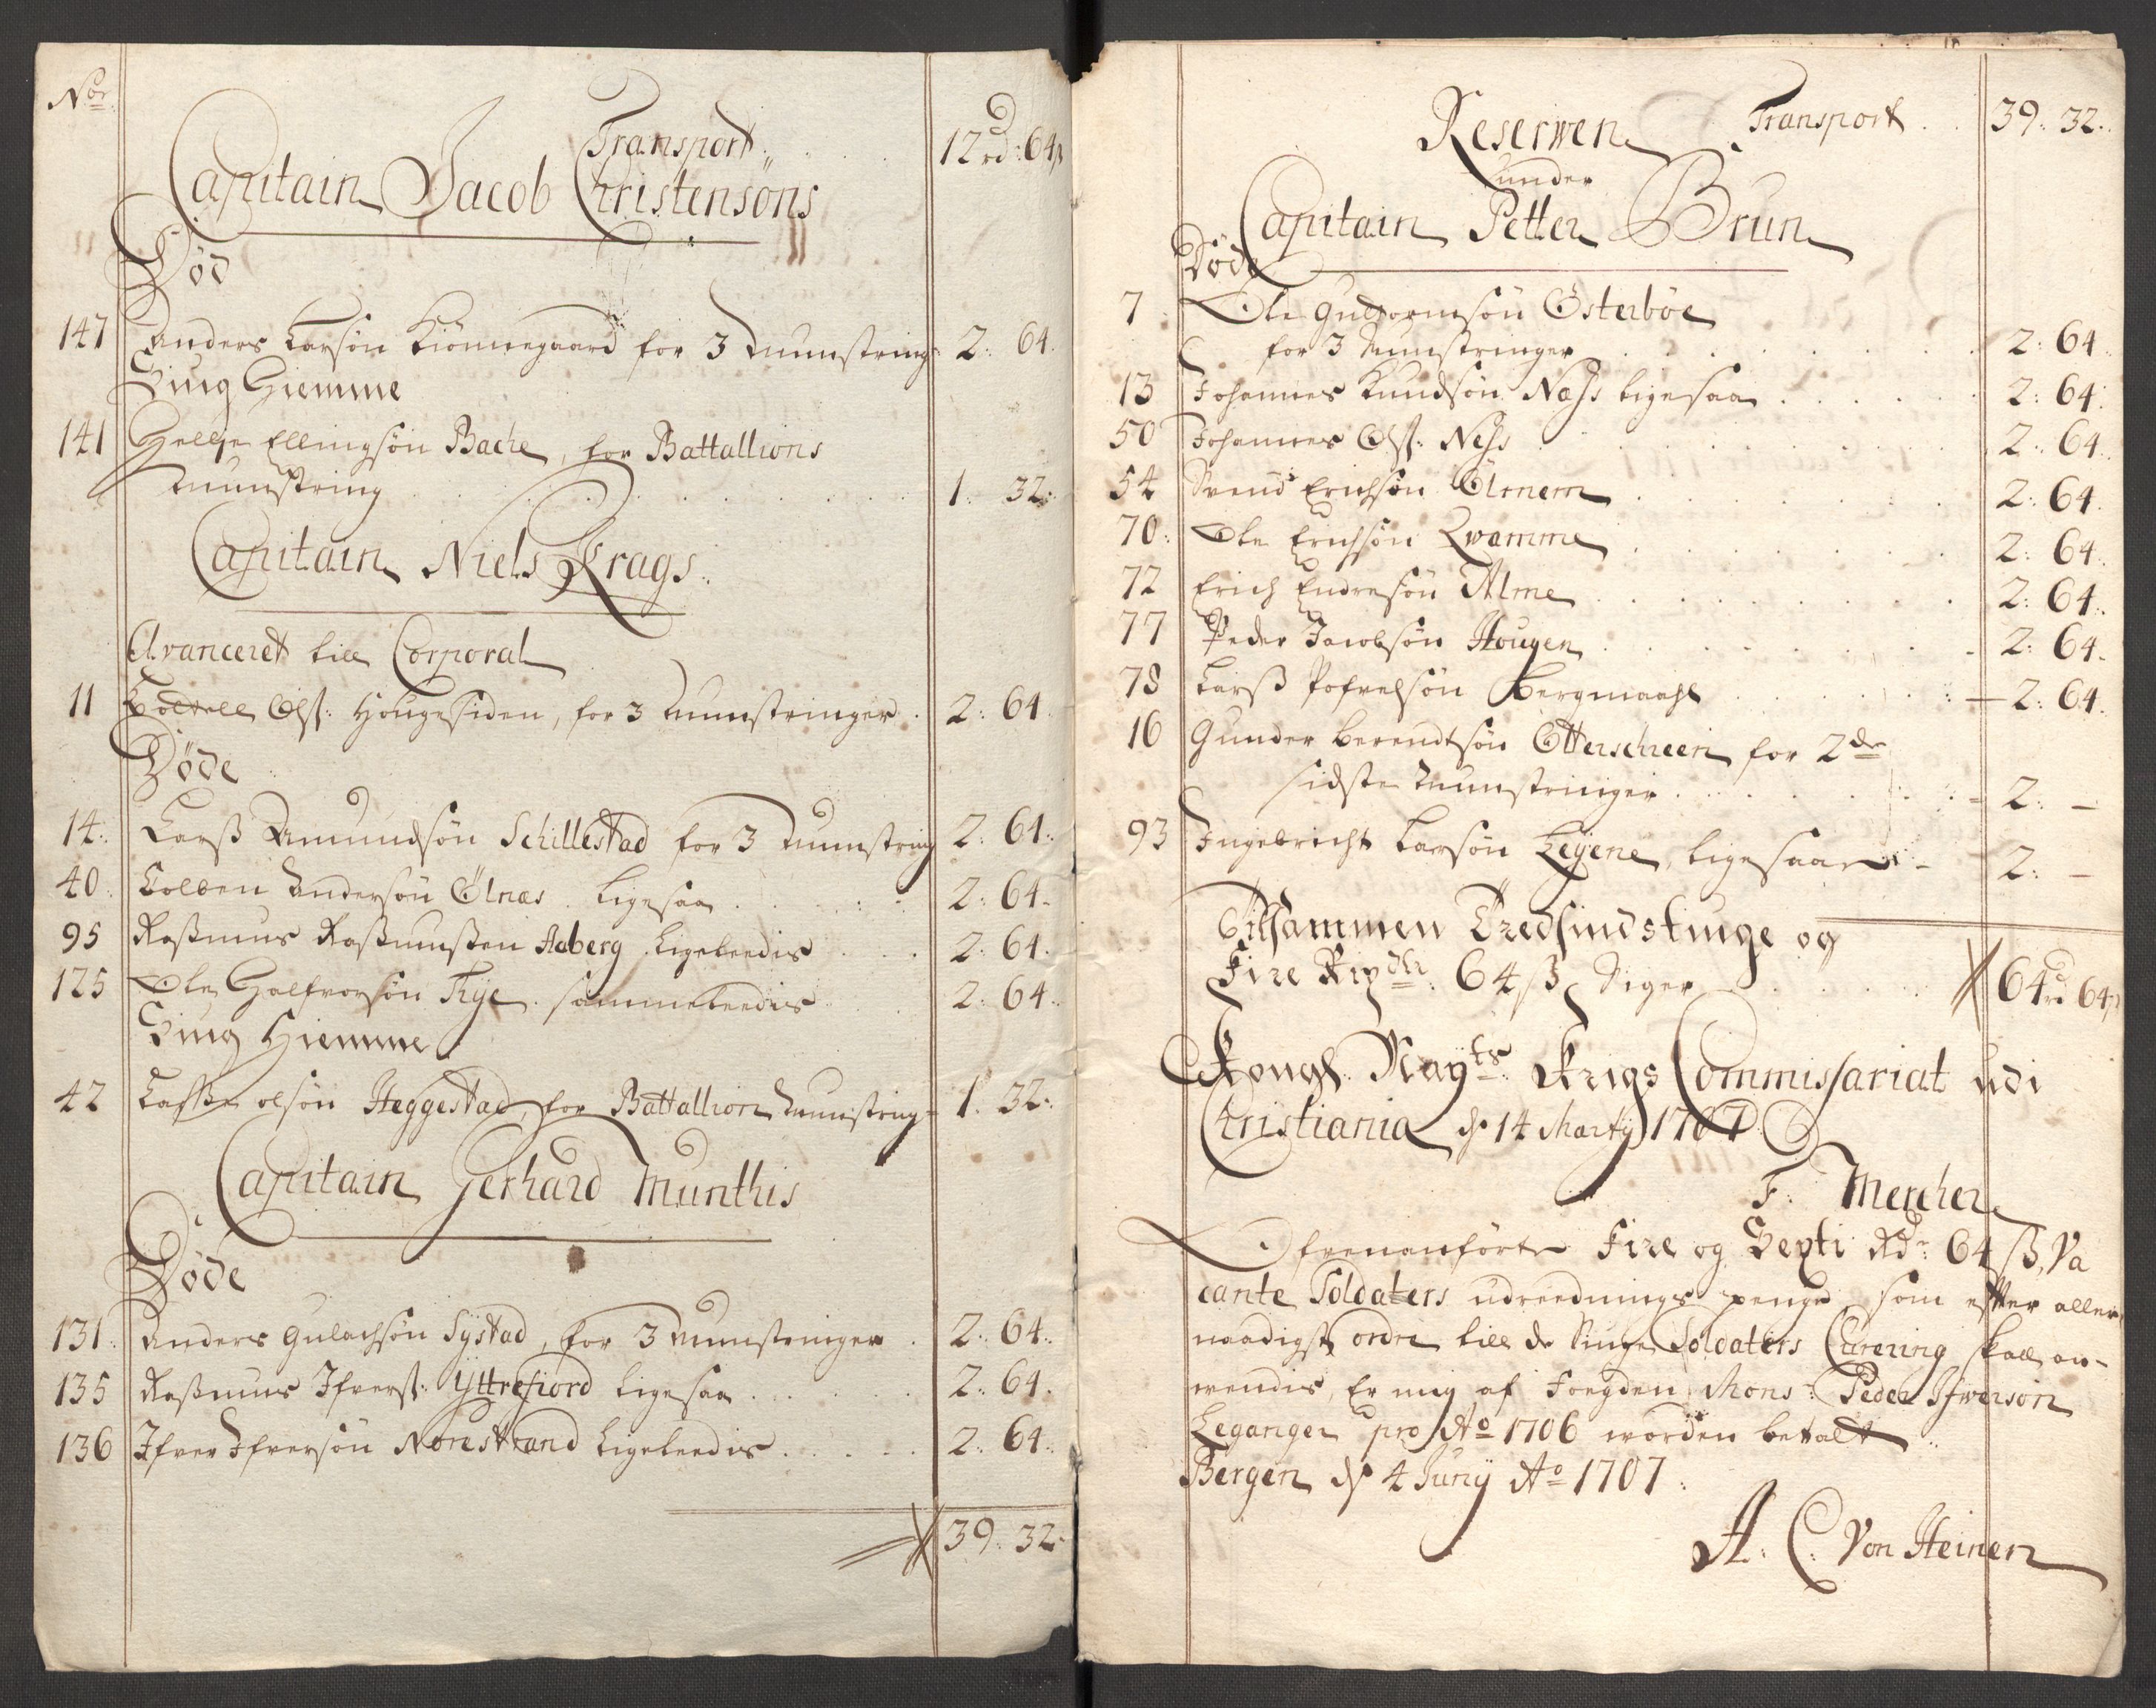 No:
Transport 12 rd: 64 ß
Capitain Jacob Christensöns
Död
147 Anders Larsön Kiönnegaard for 3 Munstring 2: 64
Siug Hiemme
141 Hellje Ellingsön Bache, for Battallions
Munstring 1 32:
Capitain Niels Krags.
Avanceret till Corporal
11 Ols: Hougesiden, for 3 Munstringer 2: 64
Döde
14: Larß Amundsön Schillestad for 3 Munstring 2: 64:
40: Colben Andersön Ölnæs. ligesaa 2: 64
95 Raßmus Raßmußen Aaberg ligeleedis 2: 64.
125 Ole Halfvorsön Tije. sammeleedis 2: 64.
Siug Hiemme
42 Laße olsön Heggestad, for Battallion Munstring 1. 32:
Capitain Gerhard Munthis
Döde
131: Anders Gulachsön Systad, for 3 Munstringer 2: 64:
135 Raßmus Ifvers: Yttrefiord ligesaa 2: 64.
136 Ifver Ifversön Norestrand ligeleedis 2: 64:
39: 32
Reserven Transport 39: 32:
under
Capitain Petter Brun
Döde
7 Ole Guldormsön Österböe
for 3 Munstringer 2: 64
13 Johannes Knudsön Næss ligesaa 2: 64:
50 Johannes Ols: Ness 2: 64
54 Svend Erichsön Ölmem 2: 64
70: Ole Erichsön Qvamme 2: 64:
72 Erich Endresön Alme 2: 64:
77 Peder Jacobsön Hougen 2: 64.
78 Larß Pofvelsön Bergmaahl 2: 64.
16 Gunder Berendtsön Otterscheen for 2de
sidste Munstringer 2: –
93 Ingebricht Larsön Legene, ligesaa 2: –
Tilsammen Tredsindstiuge og
Fire Rixdlr. 64 ß Siger 64 rd 64 ß
Kongl. Mayts: Krigs Commissariat udi
Christiania d. 14 Marty 1707
F: Mercher
Ofvenanförte Fire og Sexti Rdr: 64 ß, Va
cante Soldaters udreednings penge som efter aller
naadigst ordre till de Siuge Soldaters Curering skall an-
vendis, Er mig af Foegden Mons: Peder Ifversön
Leganger pro Ao 1706 worden betalt
Bergen d. 4 Juny Ao 1707:
A. C. Von Heinen